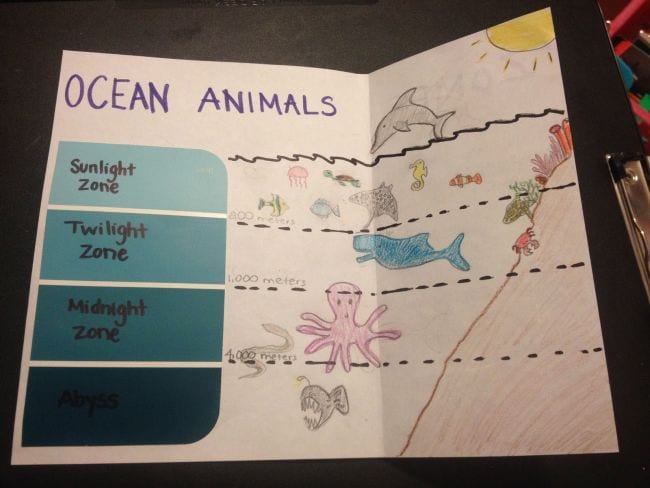 OCEAN ANIMALS
Sunlight
Zone
200 meters
Twilight
Zone
1,000 meters
Midnight
Zone
4,000 meters
Abyss